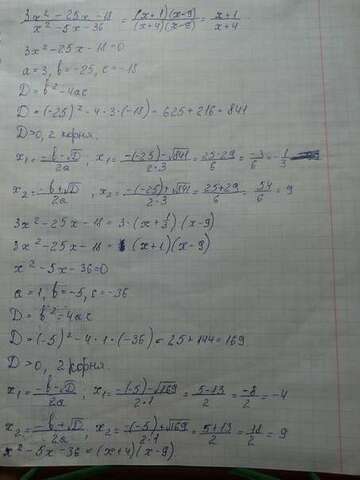 3x² - 25x - 18 / x² - 5x - 36 = (x+1)(x-9) / (x+4)(x-9) = x+1 / x+4
3x² - 25x - 18 = 0
a = 3, b = -25, c = -18
D = b² - 4ac
D = (-25)² - 4·3·(-18) = 625 + 216 = 841
D > 0, 2 корня.
x₁ = -b-√D / 2a ; x₁ = -(-25)-√841 / 2·3 = 25-29 / 6 = -3 / 6 = -1/3
x₂ = -b+√D / 2a , x₂ = -(-25)+√841 / 2·3 = 25+29 / 6 = 54 / 6 = 9
3x² - 25x - 18 = 3·(x + 1/3)(x-9)
3x² - 25x - 18 = (x+1)(x-9)
x² - 5x - 36 = 0
a = 1, b = -5, c = -36
D = b² - 4ac
D = (-5)² - 4·1·(-36) = 25 + 144 = 169
D > 0, 2 корня.
x₁ = -b-√D / 2a ; x₁ = -(-5)-√169 / 2·1 = 5-13 / 2 = -8 / 2 = -4
x₂ = -b+√D / 2a ; x₂ = -(-5)+√169 / 2·1 = 5+13 / 2 = 18 / 2 = 9
x² - 5x - 36 = (x+4)(x-9)